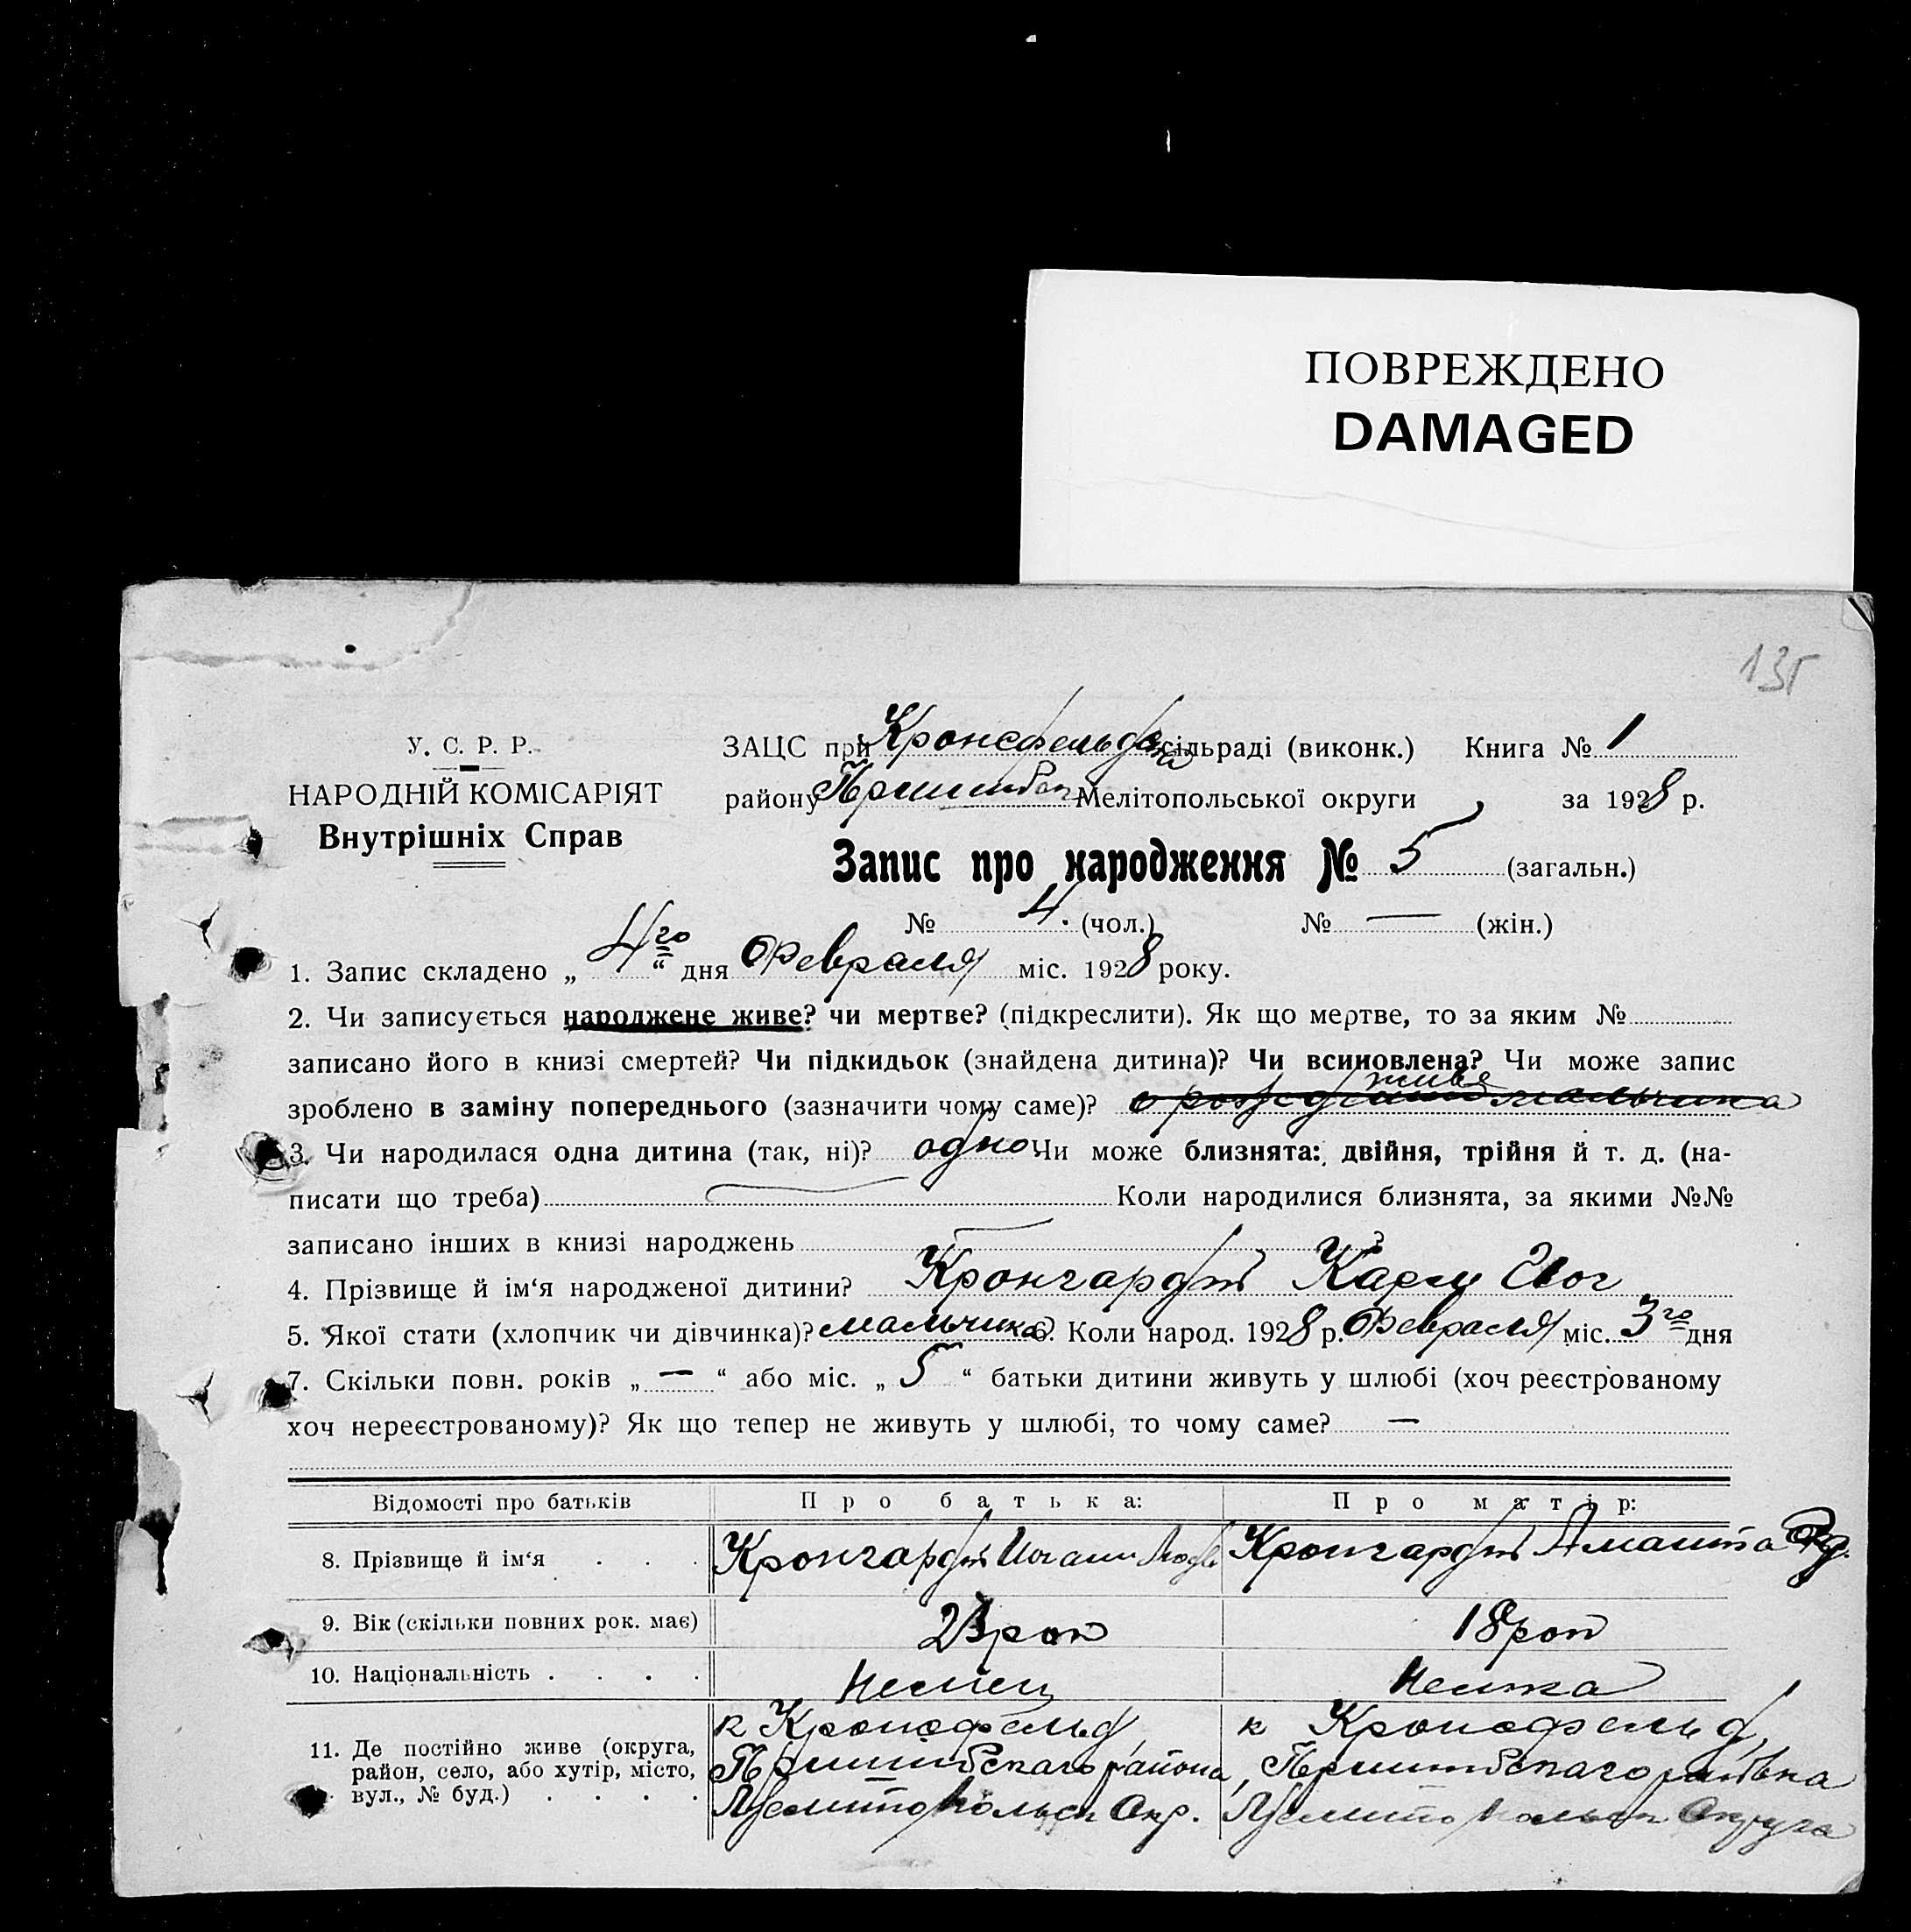 ПОВРЕЖДЕНО
DAMAGED
135
У. С. Р. Р.
НАРОДНІЙ КОМІСАРІЯТ
Внутрішніх Справ
ЗАЦС при Кронсфельдска сільраді (виконк.) Книга № 1
району Пришибск Мелітопольської округи за 1928 р.
Запис про народження № 5 (загальн.)
№ 4. (чол.) № — (жін.)
1. Запис складено „ 4го “ дня Февраля міс. 1928 року.
2. Чи записується народжене живе? чи мертве? (підкреслити). Як що мертве, то за яким №
записано його в книзі смертей? Чи підкидьок (знайдена дитина)? Чи всиновлена? Чи може запис
зроблено в заміну попереднього (зазначити чому саме)? о рождении живе мальчика
3. Чи народилася одна дитина (так, ні)? одно Чи може близнята: двійня, трійня й т. д. (на-
писати що треба) — Коли народилися близнята, за якими №№
записано інших в книзі народжень —
4. Прізвище й ім‘я народженої дитини? Кронгардт Карл Иог
5. Якої стати (хлопчик чи дівчинка)? мальчика 6. Коли народ. 1928 р. Февраля міс. 3го дня
7. Скільки повн. років „ — “ або міс. „ 5 “ батьки дитини живуть у шлюбі (хоч реєстрованому
хоч нереєстрованому)? Як що тепер не живуть у шлюбі, то чому саме? —
Відомості про батьків Про батька: Про матір:
8. Прізвище й ім‘я . . . Кронгардт Иоганн Кронгардт Амалита
9. Вік (скільки повних рок. має) 23 рок 18 рок
10. Національність . . . . Немец Немка
11. Де постійно живе (округа, район, село, або хутір, місто, вул., № буд.) . . . .
к Кронсфельд,
Пришибскаго района,
Мелитопольск Окр.
к Кронсфельд,
Пришибскаго района
Мелитопольск Округа